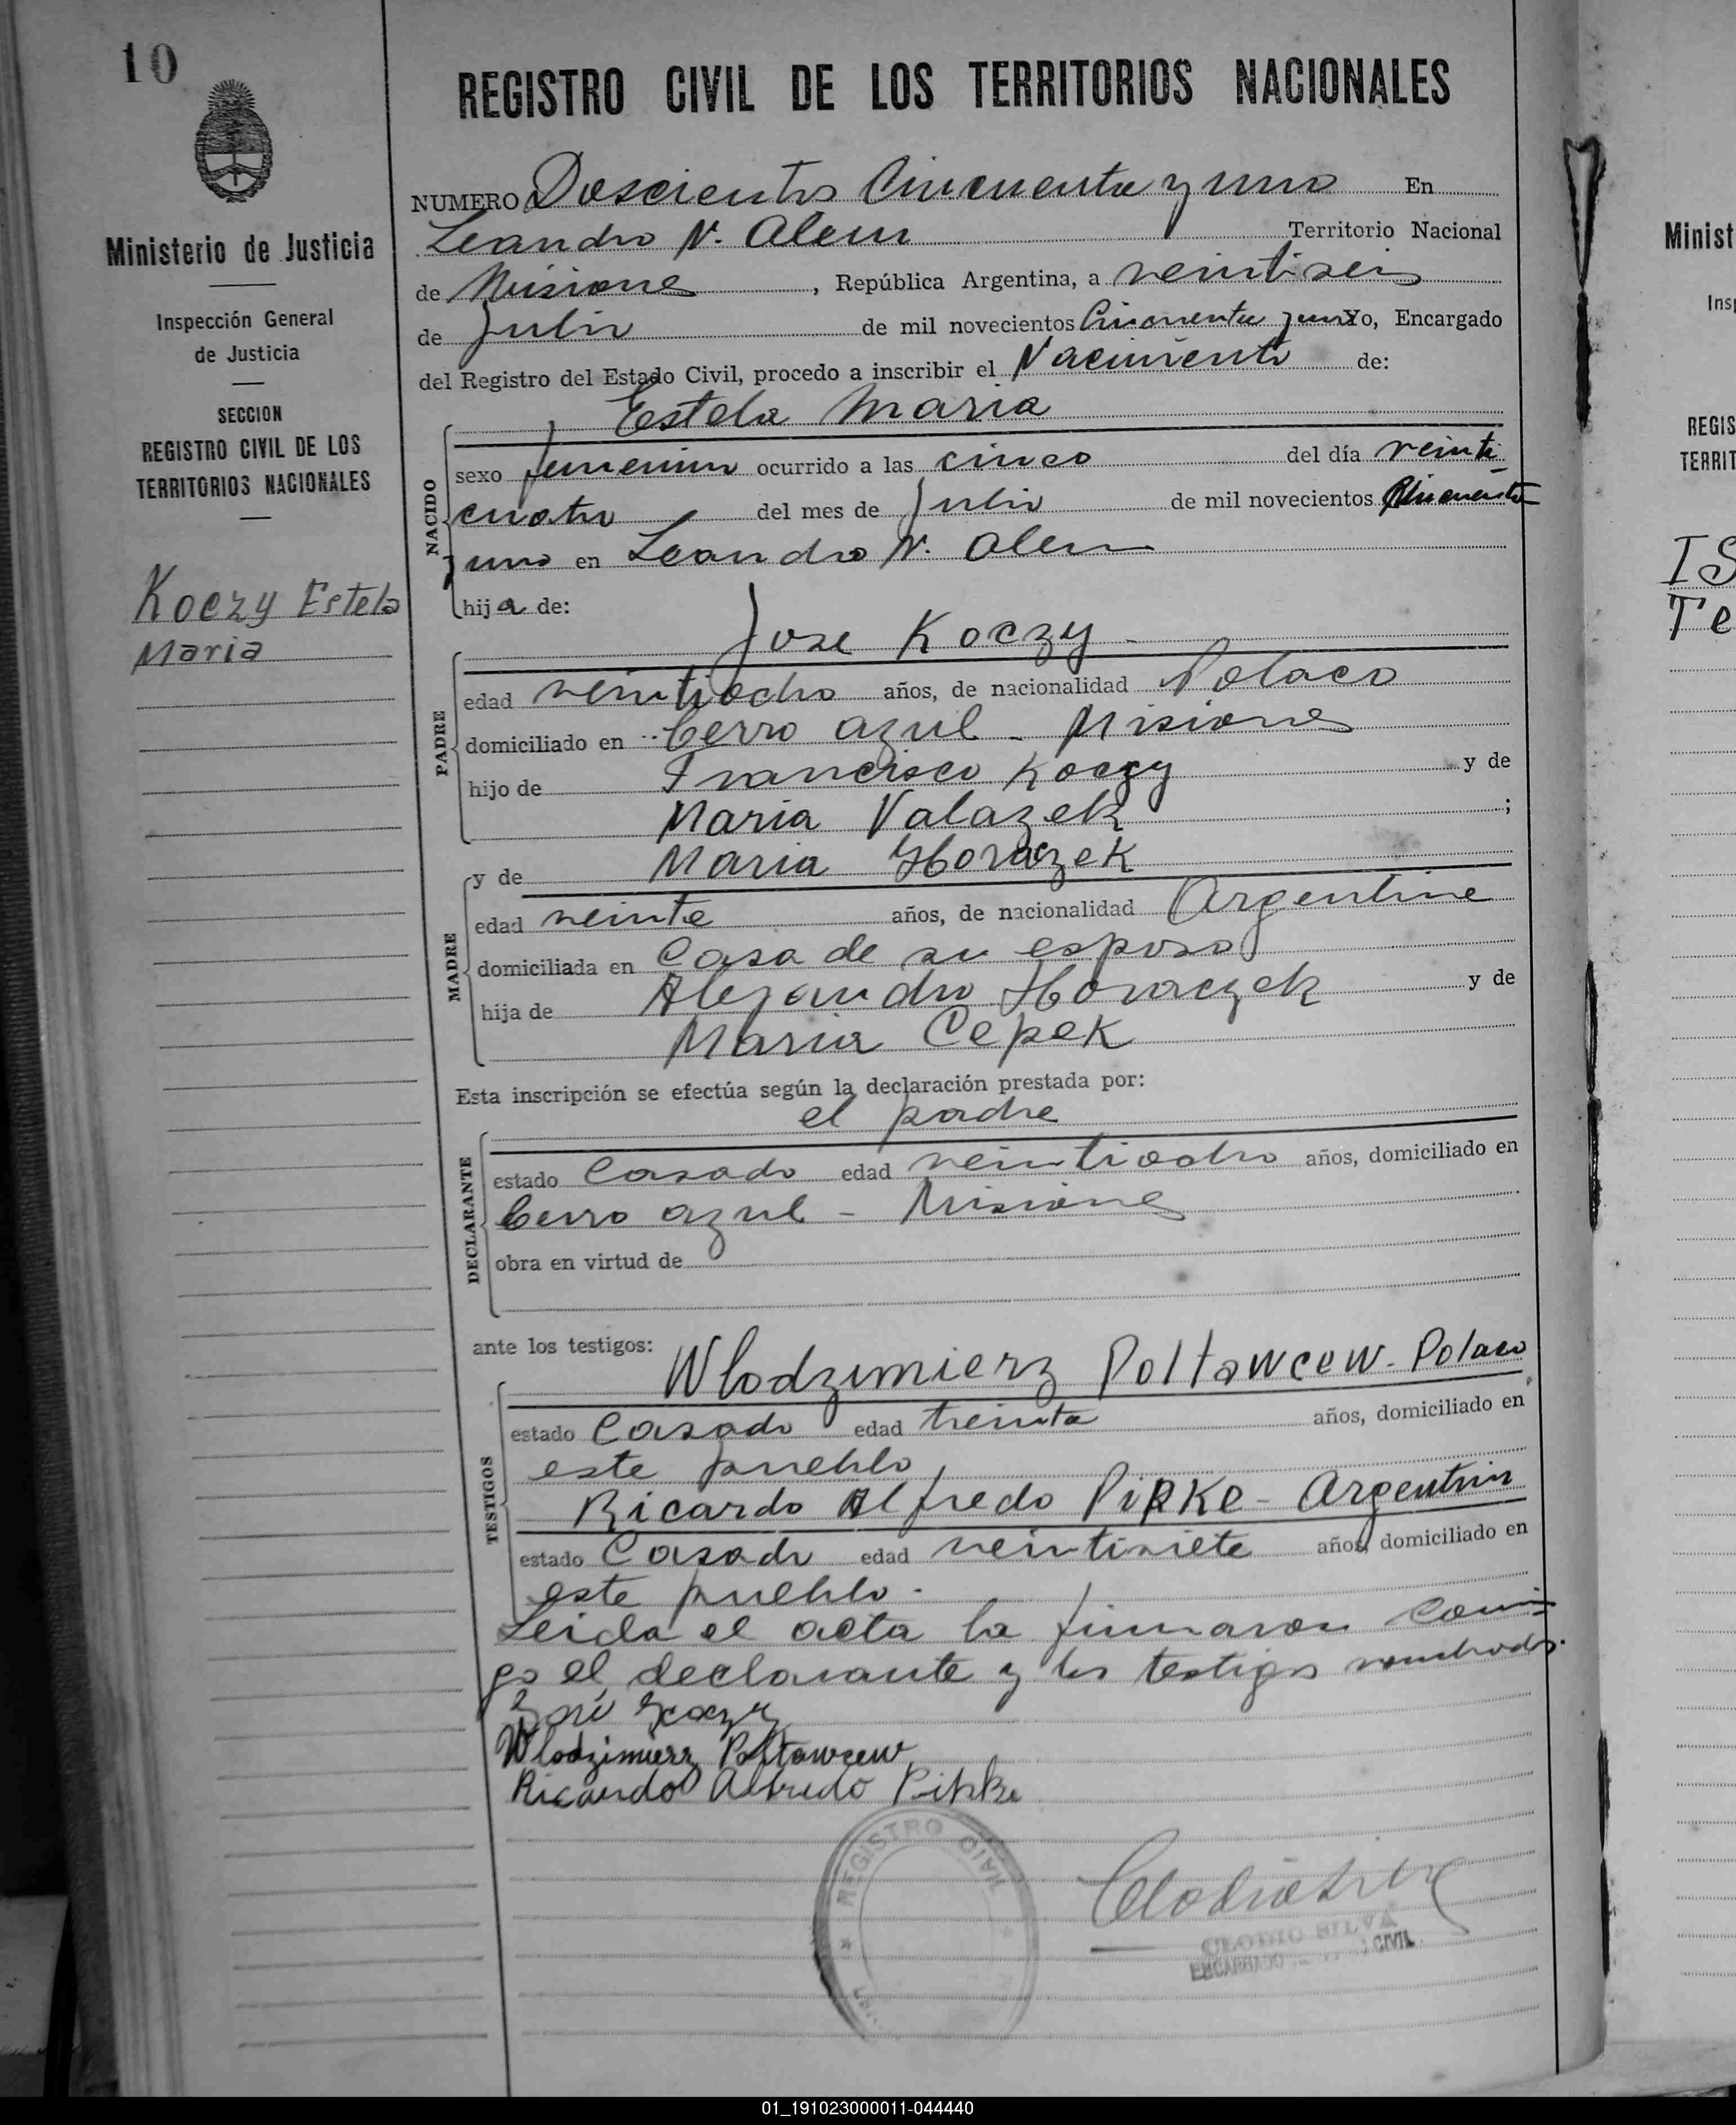 10
REGISTRO CIVIL DE LOS TERRITORIOS NACIONALES
Ministerio de Justicia
Inspección General
de Justicia
SECCION
REGISTRO CIVIL DE LOS
TERRITORIOS NACIONALES
Koczy Estela
Maria
NUMERO Doscientos Cincuenta y uno En
Leandro N. Alem Territorio Nacional
de Misiones, República Argentina, a veintiseis
de Julio de mil novecientos Cincuenta y uno Yo, Encargado
del Registro del Estado Civil, procedo a inscribir el Nacimiento de:
Estela Maria
NACIDO
sexo femenino ocurrido a las cinco del día veinti
cuatro del mes de Julio de mil novecientos Cincuenta
y uno en Leandro N. Alem
hija de:
Jose Koczy -
PADRE
edad veintiocho años, de nacionalidad Polaco
domiciliado en Cerro Azul - Misiones
hijo de Francisco Koczy y de
Maria Valazek ;
y de Maria Horaczek
MADRE
edad veinte años, de nacionalidad Argentina
domiciliada en Casa de su esposo
hija de Alejandro Horaczek y de
Maria Cepek
Esta inscripción se efectúa según la declaración prestada por:
el padre
DECLARANTE
estado Casado edad veintiocho años, domiciliado en
Cerro Azul - Misiones
obra en virtud de
ante los testigos:
Wlodzimierz Poltawcew - Polaco
TESTIGOS
estado Casado edad treinta años, domiciliado en
este pueblo
Ricardo Alfredo Pipke - Argentino
estado Casado edad veintisiete años, domiciliado en
este pueblo.
Leida el acta la firmaron conmi=
go el declarante y los testigos nombrados.
José Koczy
Wlodzimierz Poltawcew
Ricardo Alfredo Pipke
REGISTRO CIVIL
Clodio Silva
CLODIO SILVA
ENCARGADO CIVIL
Minist
Insp
REGIS
TERRIT
IS
Te
01_191023000011-044440